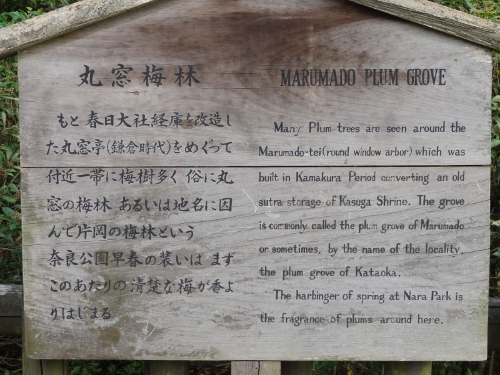 丸窓梅林
もと春日大社経庫を改造し
た丸窓亭(鎌倉時代)をめぐって
付近一帯に梅樹多く 俗に丸
窓の梅林 あるいは地名に因
んで片岡の梅林という
奈良公園早春の装いは まず
このあたりの清楚な梅が香よ
りはじまる
MARUMADO PLUM GROVE
Many Plum trees are seen around the
Marumado-tei(round window arbor) which was
built in Kamakura Period converting an old
sutra storage of Kasuga Shrine. The grove
is commonly called the plum grove of Marumado
or sometimes, by the name of the locality,
the plum grove of Kataoka.
The harbinger of spring at Nara Park is
the fragrance of plums around here.